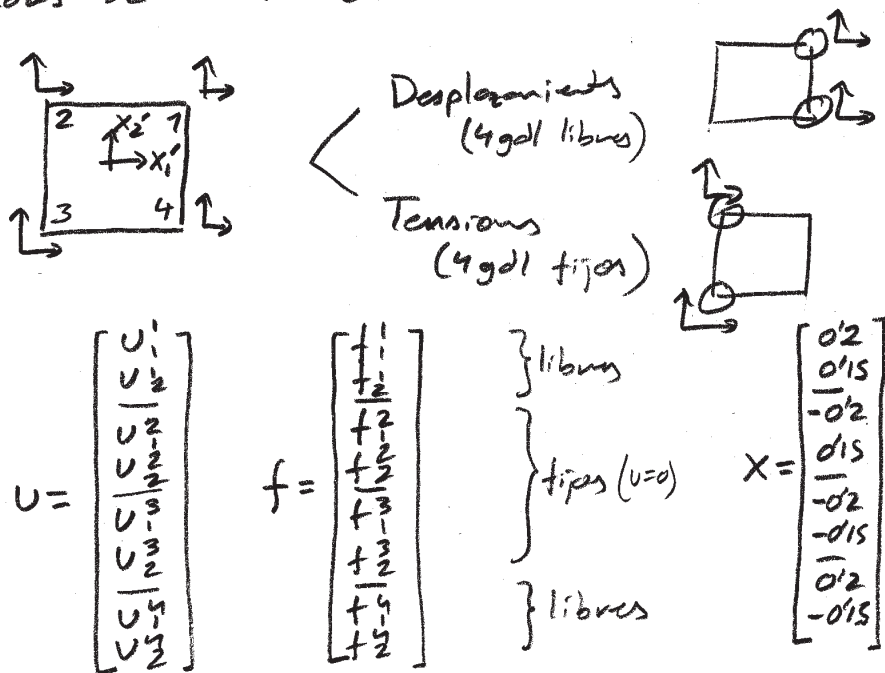 2 1
x₂'
x₁'
3 4
Desplazamients
(4 gdl libres)
Tensions
(4 gdl fijos)
u = [ u₁¹ u₂¹ u₁² u₂² u₁³ u₂³ u₁⁴ u₂⁴ ]
f = [ f₁¹ f₂¹ f₁² f₂² f₁³ f₂³ f₁⁴ f₂⁴ ]
} libres
} fijos (u=0)
} libres
x = [ 0'2 0'15 -0'2 0'15 -0'2 -0'15 0'2 -0'15 ]